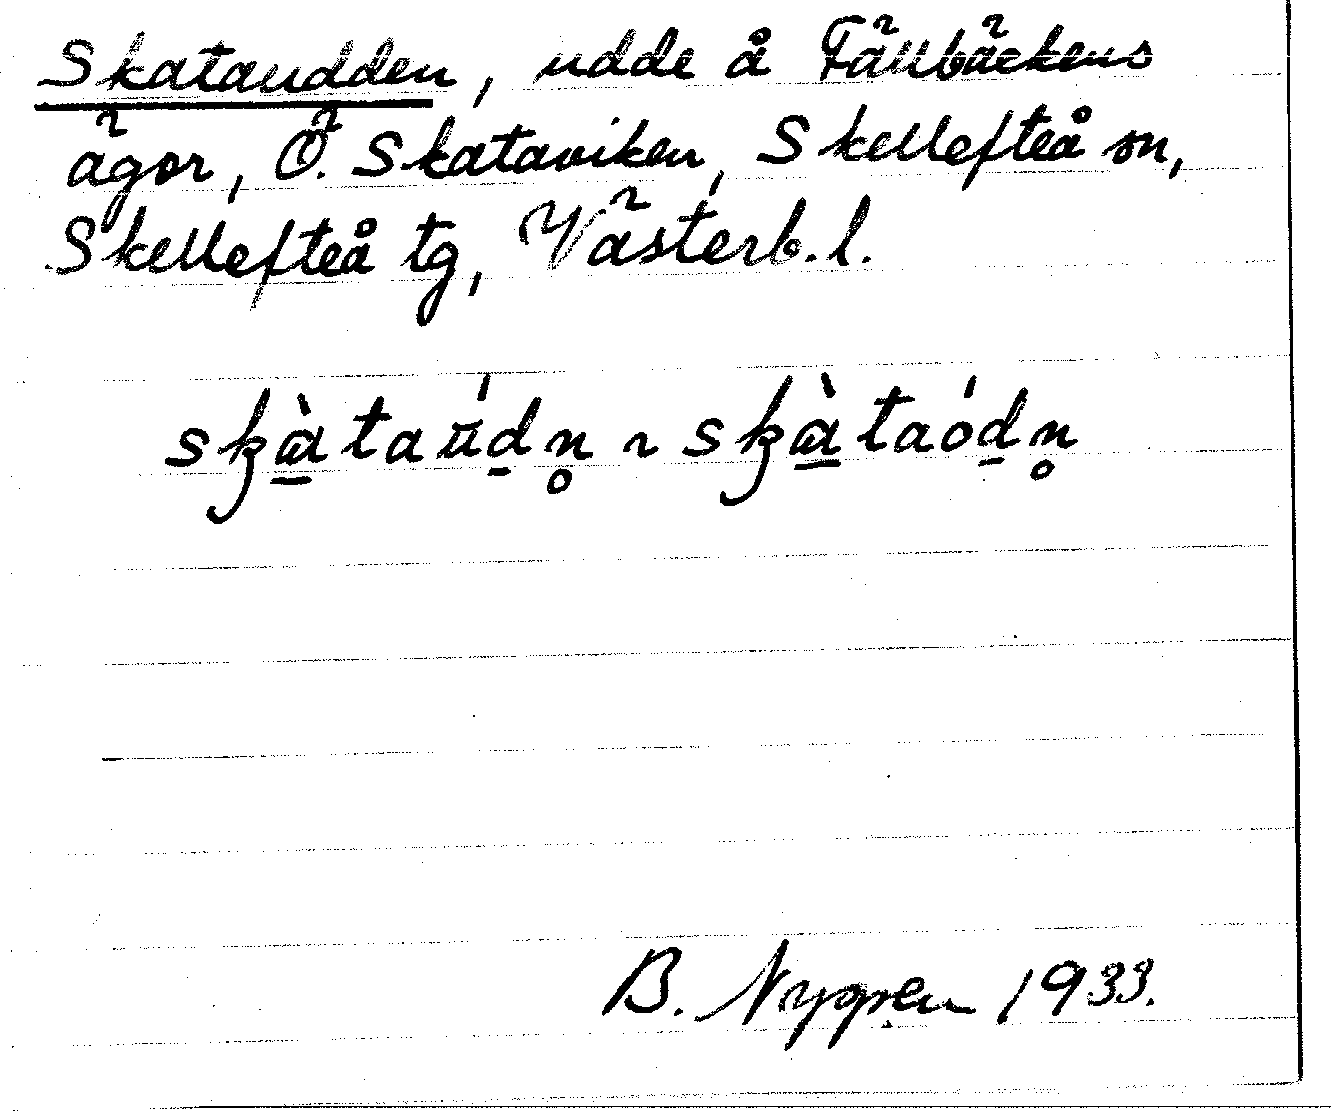 Skataudden, udde å Fällbäckens
ägor, Ö. Skataviken, Skellefteå sn,
Skellefteå tg, Västerb. l.
skà̱taúḏn̥ ~ skà̱taóḏn̥
B. Nyppen 1933.